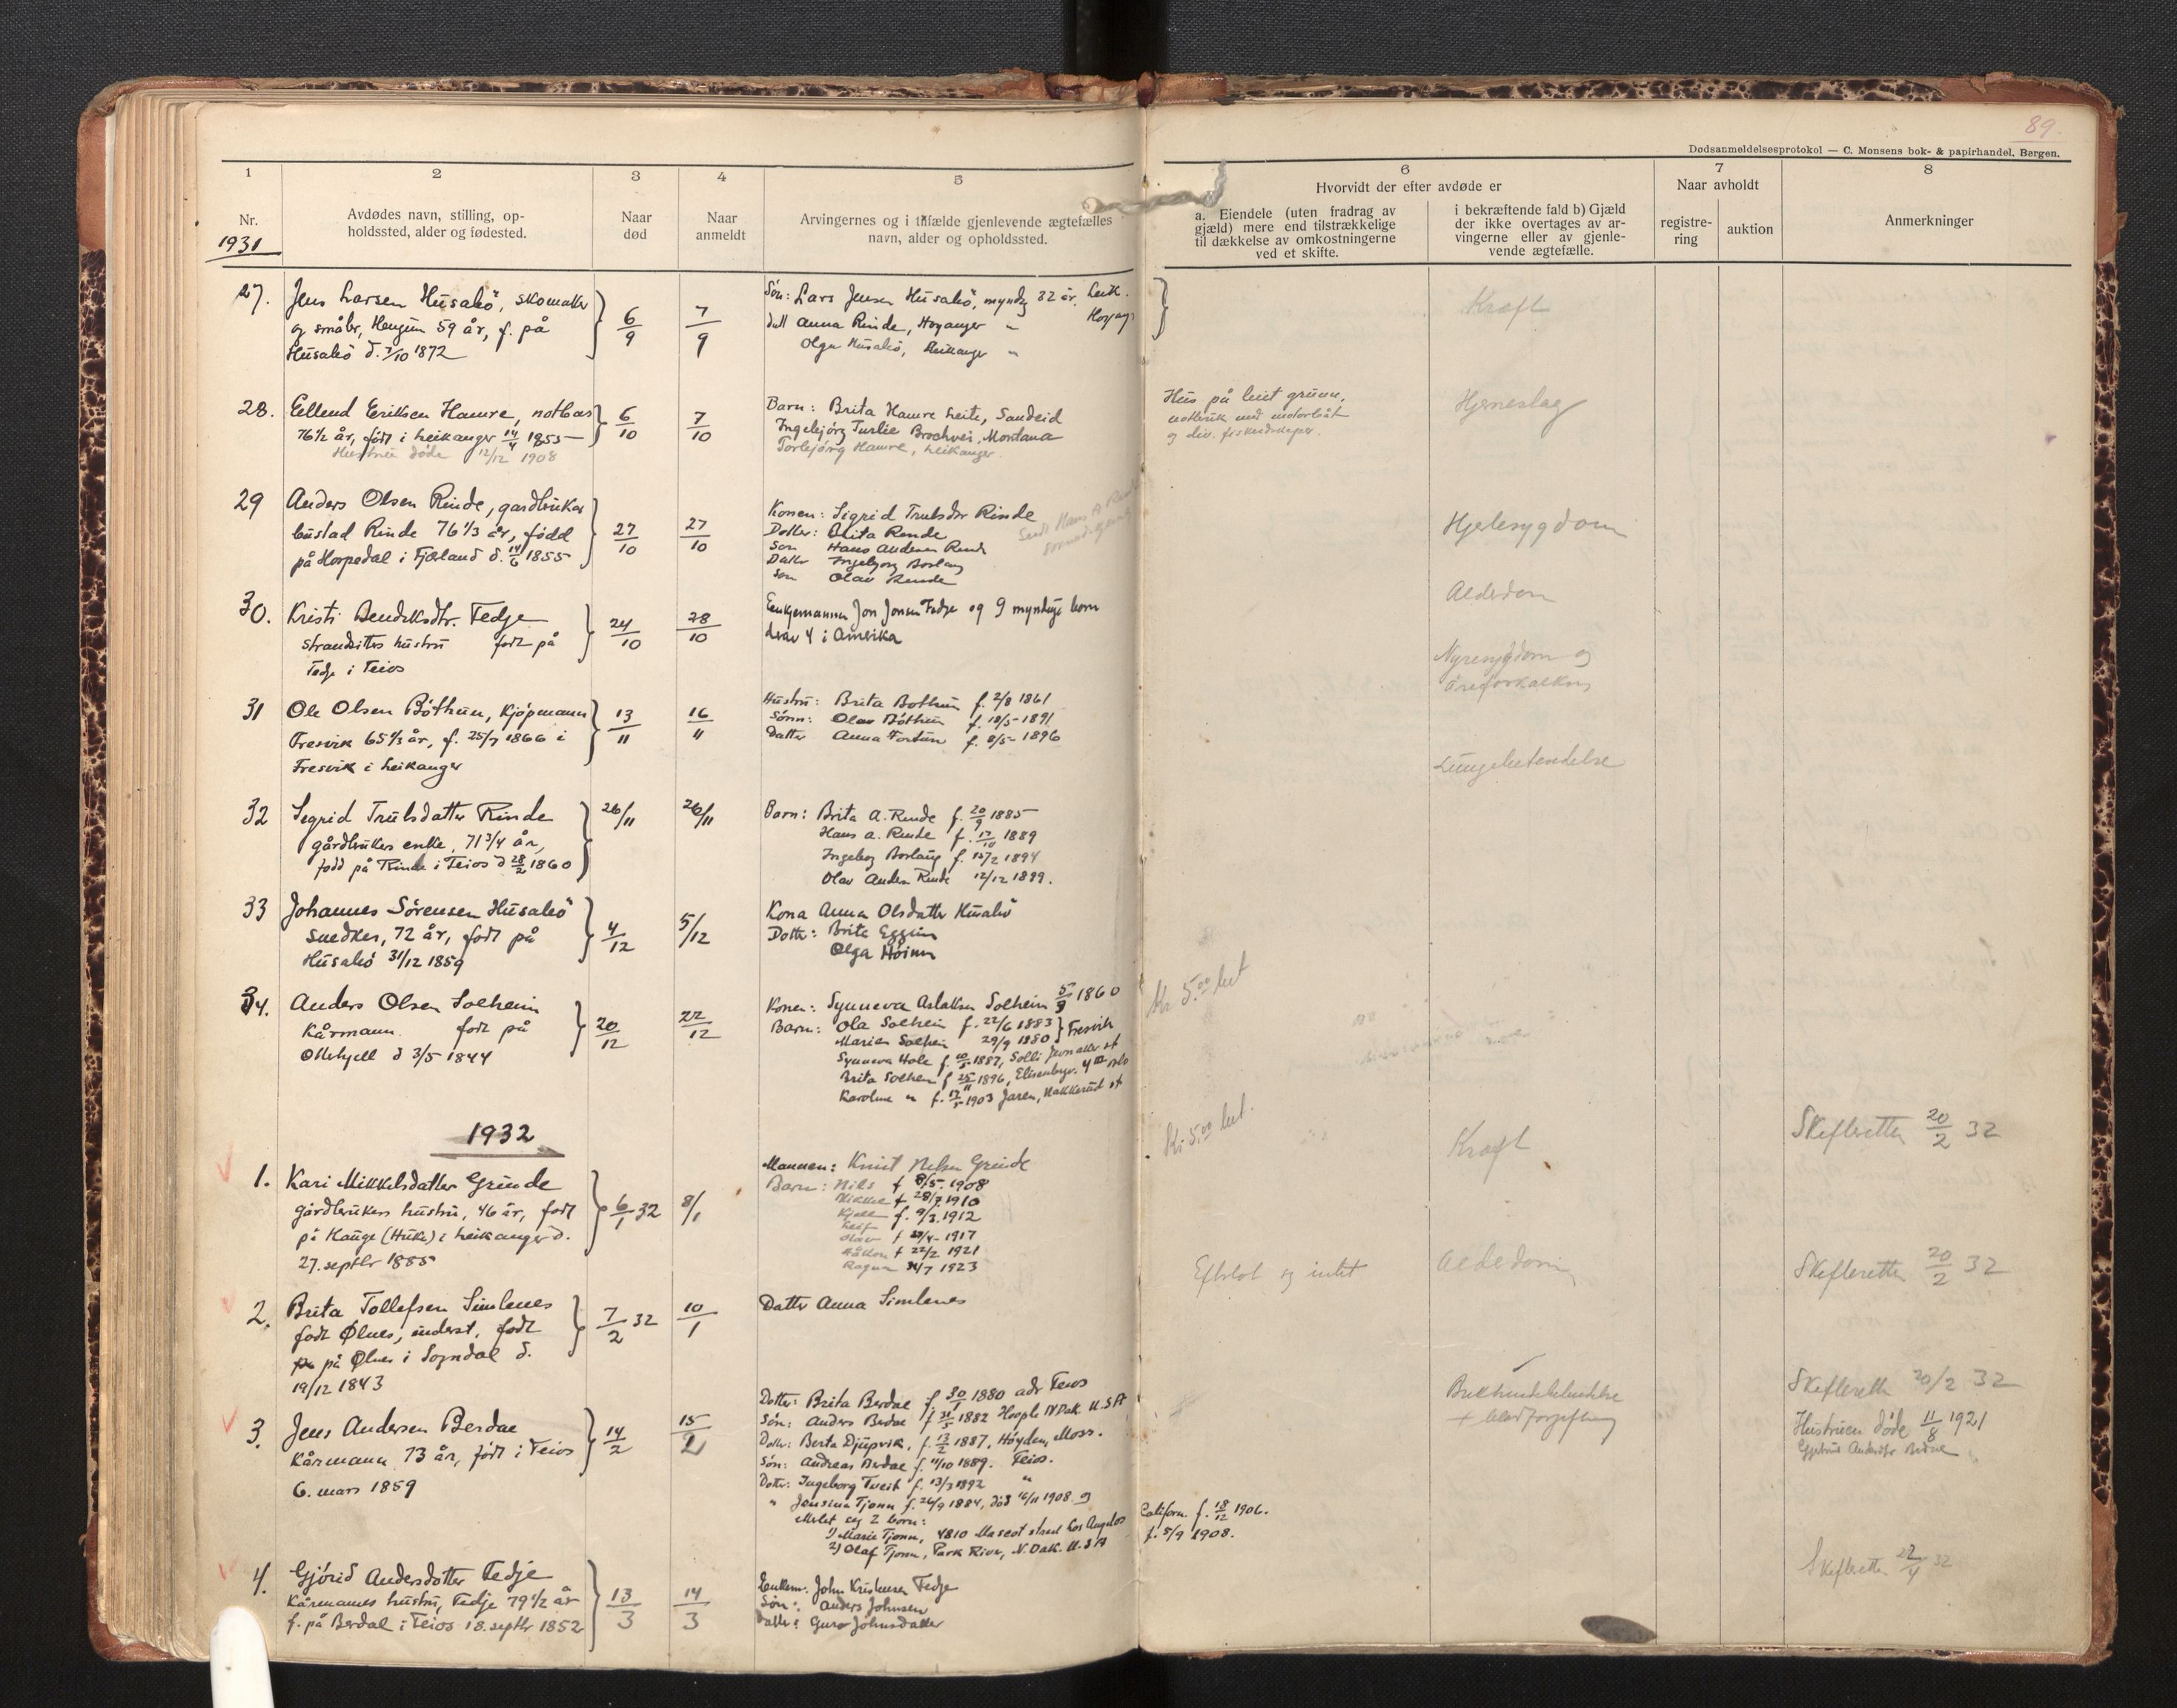 89.
Dødsanmeldelsesprotokol — C. Monsens bok- & papirhandel. Bergen.
1
2
3
4
5
6
7
8
Nr.
1931
Avdødes navn, stilling, op-
holdssted, alder og fødested.
Naar
død
Naar
anmeldt
Arvingernes og i tilfælde gjenlevende ægtefælles
navn, alder og opholdssted.
Hvorvidt der efter avdøde er
a. Eiendele (uten fradrag av
gjæld) mere end tilstrækkelige
til dækkelse av omkostningerne
ved et skifte.
i bekræftende fald b) Gjæld
der ikke overtages av ar-
vingerne eller av gjenle-
vende ægtefælle.
Naar avholdt
registre-
ring
auktion
Anmerkninger
27.
Jens Larsen Husabö, skomaker
og småbr, Hengün 59 år, f. på
Husabö d. 7/10 1872
6/9
7/9
Sön: Lars Jensen Husabö, myndig 32 år, Leik.
datt Anna Rinde, Høyanger "
Olga Husabö, Leikanger "
Kræft
28.
Eellend Eriksen Hamre, notbas
76½ år, født i Leikanger 14/4 1855
Hustrue døde 12/12 1908
6/10
7/10
Barn: Brita Hamre Leite, Sandeid
Ingebjörg Turlie Brochvei, Montana
Torbjörg Hamre, Leikanger.
Hus på leiet grunn,
notbruk med motorbåt
og div. fiskeredskaper.
Hjerneslag
29
Anders Olsen Rinde, gardbruker
bustad Rinde 76 1/3 år, fødd
på Horpedal i Fjæland d. 14/6 1855
27/10
27/10
Konen: Sigrid Trulsdtr Rinde
Dotter: Brita Rinde
Son Hans Andersen Rinde
Datter Ingebjorg Borlaug
Son Olav Rinde
Send Hans A Rinde
Hjertesygdom
30.
Kristi Bendiksdtr. Fedje
strandsitters hustru født på
Fedje i Feios
24/10
28/10
Enkjemannen Jon Jonsen Fedje og 9 myndige born
derav 4 i Amerika
Alderdom
31
Ole Olsen Böthun, Kjöpmann
Fresvik 65 1/3 år, f. 25/7 1866 i
Fresvik i Leikanger
13/11
16/11
Hustru: Brita Bothun f. 2/8 1861
Sönn: Olav Böthun f. 18/5 - 1891
Datter Anna Fortun f. 8/5 - 1896
Nyresygdom og
åreforkalkning
32
Segrid Trulsdatter Rinde
gårdbrukers enke, 71 3/4 år,
född på Rinde i Feios d 28/2 1860
26/11
26/11
Barn: Brita A. Rinde f. 20/9 1885
Hans A. Rinde f. 17/10 1889
Ingeborg Borlaug f. 12/2 1894
Olav Anders Rinde 12/12 1899.
Lungebetendelse
33
Johannes Sörensen Husabö
snedker, 72 år, født på
Husabö 31/12 1859
4/12
5/12
Kona Anna Olsdatter Husabö
Dotter: Brita Eggum
Olga
34.
Anders Olsen Solheim
Kårmann. født på
d 3/5 1844
20/12
22/12
Konen: Synneva Aslaksen Solheim 5/9 1860
Barn: Ola Solheim f. 22/6 1883 } Fresvik
Marien Solheim 29/9 1880
Synneva Hole f. 1887, Solli
Brita Solheim f 25/11 1896, Elisenbgv. 4 III Oslo
Karoline " f. 1903 Jaren, Hakkerud st
Kr 5.00 bet
1932
1.
Kari Mikkelsdatter Grinde
gårdbrukers hustru, 46 år, født
på Hauge (Huke) i Leikanger d.
27. septbr 1885
6/1 32
8/1
Mannen: Knut Nilsen Grinde
Barn: Nils f 8/5. 1908
Mikkel f 28/7 1910
Kjell f. 9/3. 1912
Leif
Olav f 1917
Håkon f 22/2 1921
Ragna 1923
Kr. 5.00 bet.
Kræft
Skifteretten 20/2 32
2.
Brita Tollefsen Simlenes
født Ølnes, inderst, født
på Ølnes i Sogndal d.
19/12 1843
7/2 32
10/1
Datter Anna Simlenes
Efterlot sig intet
Alderdom
Skifteretten 20/2 32
3.
Jens Andersen Berdae
Kårmann 73 år, født i Feios
6. mars 1859
14/2
15/2
Dotter: Brita Berdae f. 30/1 1880 adr Feios
Sön: Anders Berdae f 31/5 1882 Hoople N Dak. U.S.A
Dotter: Berta Djupvik, f. 13/2 1887, Höyden, Moss.
Sön: Andreas Berdae f. 11/10 1889. Feios.
Dotter: Ingeborg Tveit f. 13/3 1892 "
" Jensina Tjonn f. 26/9 1884, död 16/11 1908 og
etterlet seg 2 born:
1) Marie Tjonn, 4810 Mascot street Los Angelos Californ. f. 18/12 1906.
2) Olaf Tjonn, Park River, N. Dak. U.S.A f. 5/9 1908.
Brukhindebetendelse
+ blodforgiftning
Skifterett 20/2 32
Hustruen døde 11/8 1921
Gjertrud Andersdtr Berdae
4.
Gjörid Andersdotter Fedje
Kårmannes hustru, Fedje 79½ år
f. på Berdal i Feios 18. septbr 1852
13/3
14/3
Enkem. John Kristensen Fedje
Sön: Anders Johnsen
Datter: Guro Johnsdatter
Skifteretten 22/4 32